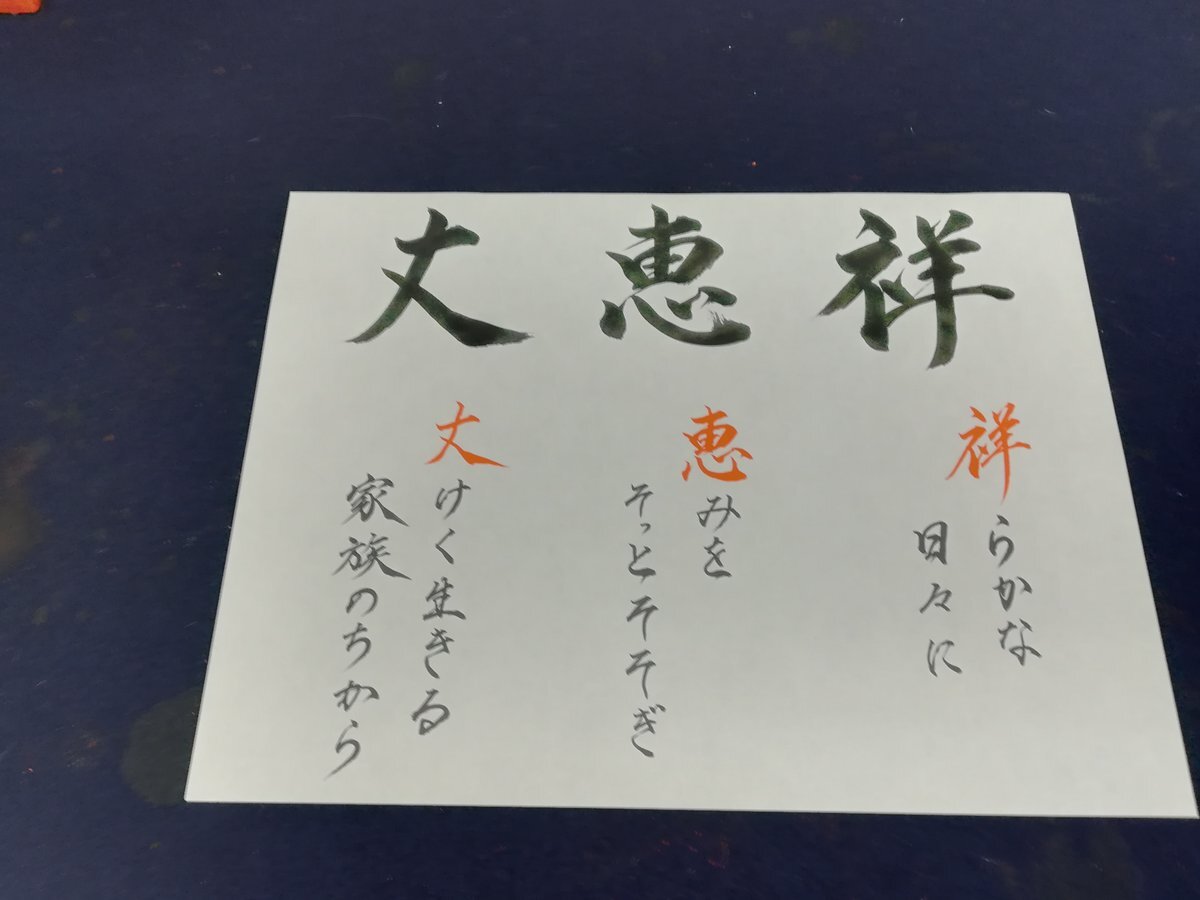 祥 恵 丈
祥らかな
日々に
恵みを
そっとそそぎ
丈けく生きる
家族のちから